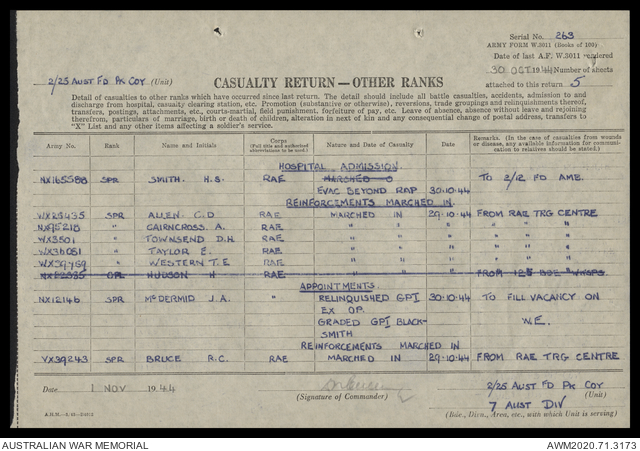 Serial No. 263
ARMY FORM W.3011 (Books of 100)
Date of last A.F. W.3011 rendered
30 OCT 1944 Number of sheets
attached to this return 5
2/25 AUST FD PK COY (Unit)
CASUALTY RETURN—OTHER RANKS
Detail of casualties to other ranks which have occurred since last return. The detail should include all battle casualties, accidents, admission to and
discharge from hospital, casualty clearing station, etc. Promotion (substantive or otherwise), reversions, trade groupings and relinquishments thereof,
transfers, postings, attachments, etc., courts-martial, field punishment, forfeiture of pay, etc. Absence without leave and rejoining
therefrom, particulars of marriage, birth or death of children, alteration in next of kin and any consequential change of postal address, transfers to
"X" List and any other items affecting a soldier's service.
Army No. Rank Name and Initials Corps (Full title and authorized abbreviations to be used.) Nature and Date of Casualty Date Remarks. (In the case of casualties from wounds or disease, any available information for communication to relatives should be stated.)
HOSPITAL ADMISSION
NX165588 SPR SMITH. H.S. RAE MARCHED O TO 2/12 FD AMB.
EVAC BEYOND RAP 30.10.44
REINFORCEMENTS MARCHED IN
WX29435 SPR ALLEN. C.D RAE MARCHED IN 29.10.44 FROM RAE TRG CENTRE
NX95218 " CAIRNCROSS. A. RAE " " " " " " "
WX3501 " TOWNSEND D.H. RAE " " " " " " "
WX36051 " TAYLOR E. RAE " " " " " " "
WX39759 " WESTERN T.E RAE " " " " " " "
CPL HUDSON H RAE FROM BDE WKSPS
APPOINTMENTS.
NX12146 SPR McDERMID J.A. " RELINQUISHED GPI 30.10.44 TO FILL VACANCY ON
EX OP.
GRADED GPI BLACK- W.E.
SMITH
REINFORCEMENTS MARCHED IN
VX39243 SPR BRUCE R.C. RAE MARCHED IN 29.10.44 FROM RAE TRG CENTRE
Date 1 NOV 1944
(Signature of Commander)
2/25 AUST FD PK COY
(Unit)
7 AUST DIV
(Bde., Divn., Area, etc., with which Unit is serving)
AUSTRALIAN WAR MEMORIAL AWM2020.71.3173